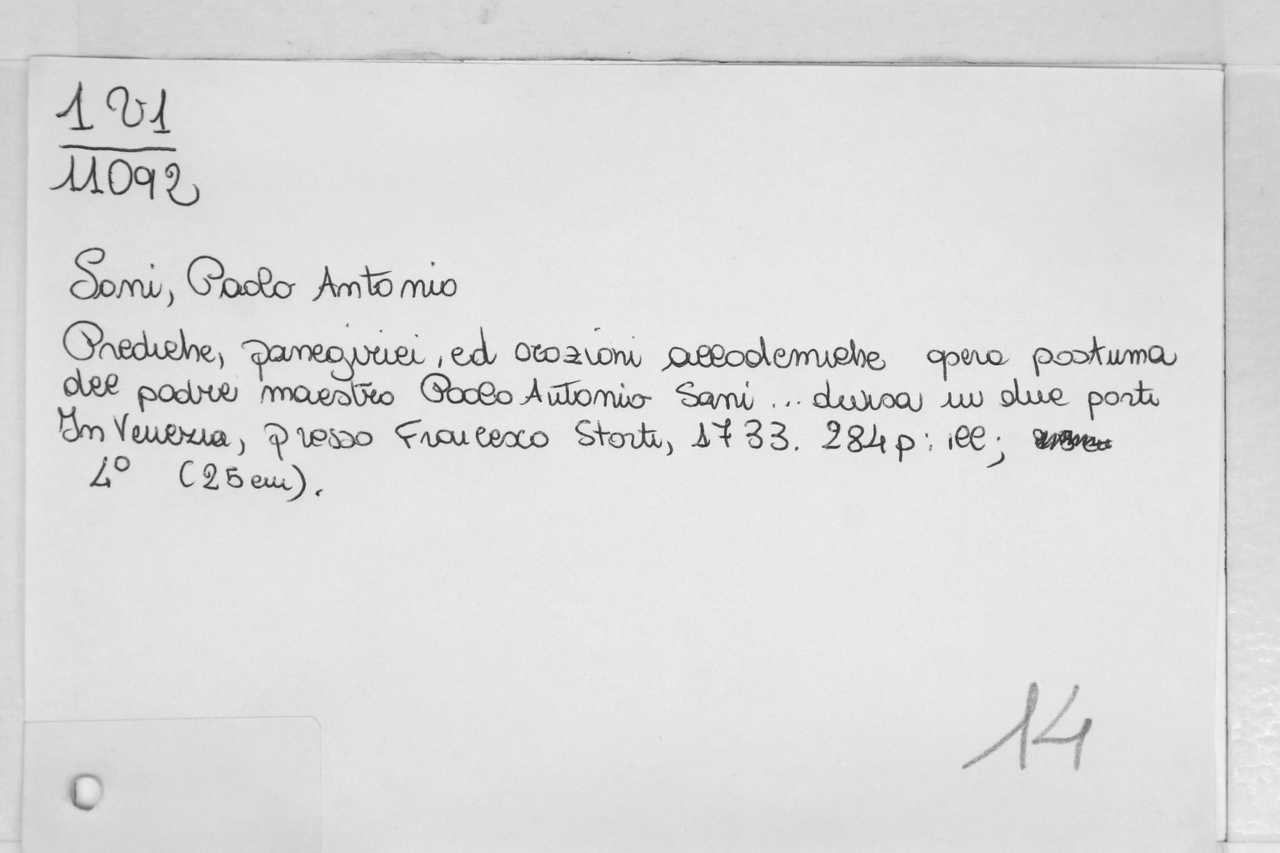 1 V1
11092
Sani, Paolo Antonio
Prediche, panegirici, ed orazioni accademiche opera postuma
del padre maestro Paolo Antonio Sani ... divisa in due parti
In Venezia, presso Francesco Storti, 1733. 284 p : ill ;
4° (25 cm).
14